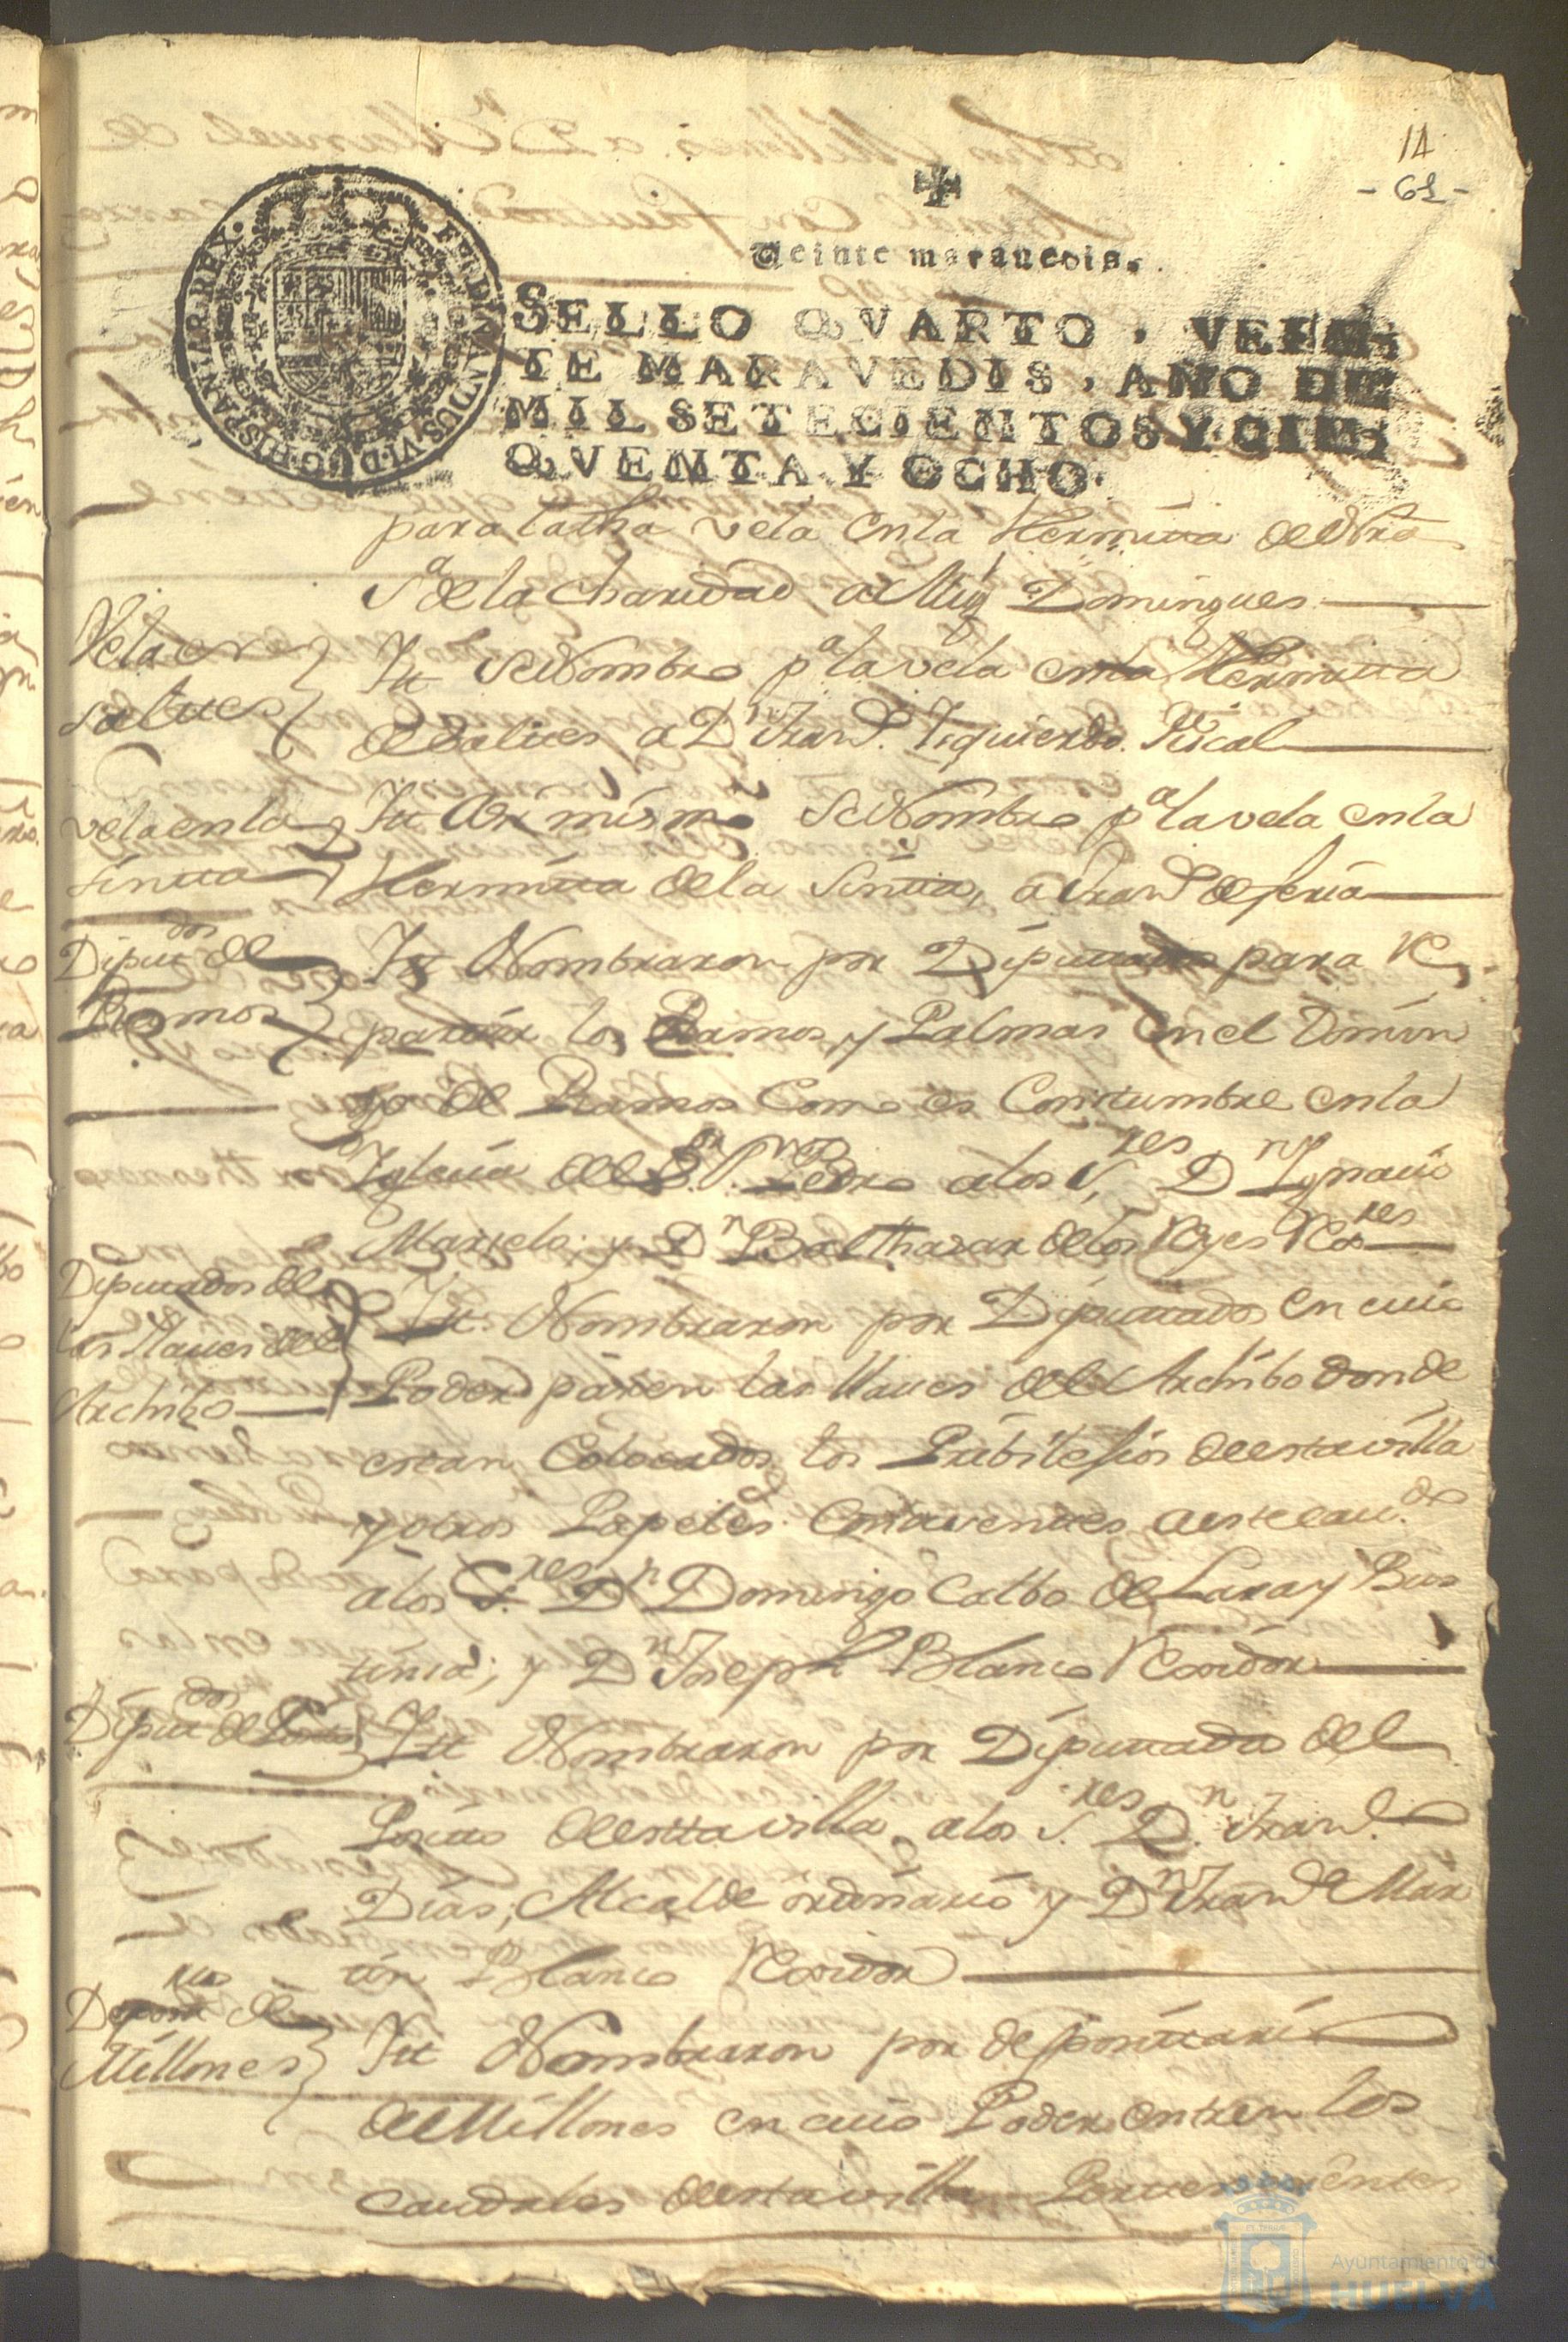 14
- 61 -
Veinte maravedis.
SELLO QVARTO, VEIN-
TE MARAVEDIS, AÑO DE
MIL SETECIENTOS Y CIN-
QVENTA Y OCHO.
FERDINANDUS·VI·D·G·HISPANIAR·REX·
para la dha vela en la Hermita de Nra
Sª de la Charidad a Migl Domingues
Vela en
saltues
Itt Se Nombro pª la vela en la Hermita
de Saltes a Dn Franco Izquierdo Fiscal
vela en la
Sinta
Itt Asi mismo Se Nombro pª la vela en la
Hermita de la Sinta, a Franco de feria
Diputdos de
Ramos
Itt Nombraron por Diputados para Re
partir los Ramos y Palmas en el Domin
go de Ramos Como es Constumbre en la
Iglecia del Sr Sn Pedro a los Sres Dn Ignacio
Marselo, y Dn Balthazar de los Reyes Rexres
Diputados de
las llaues del
Archibo
Itt Nombraron por Diputados en cuio
Poder paren las llaues del Archibo donde
estan Colocados los Pribilesios de esta villa
y otros Papeles Contuventtes a este cauldo
a los Sres Dn Domingo Calbo de Lara y Bus
tinca; y Dn Joseph Blanco Rexidor
Diputdos de Posito
Itt Nombraron por Diputados del
Posito de estta villa a los Sres Dn Franco
Dias, Alcalde ordinario y Dn Franco Mar
tin Blanco Rexidor
Deposrio de
Millones
Itt Nombraron por despositario
de Millones en cuio Poder entren los
caudales de esta villa Pertenesientes
Ayuntamiento de
HUELVA